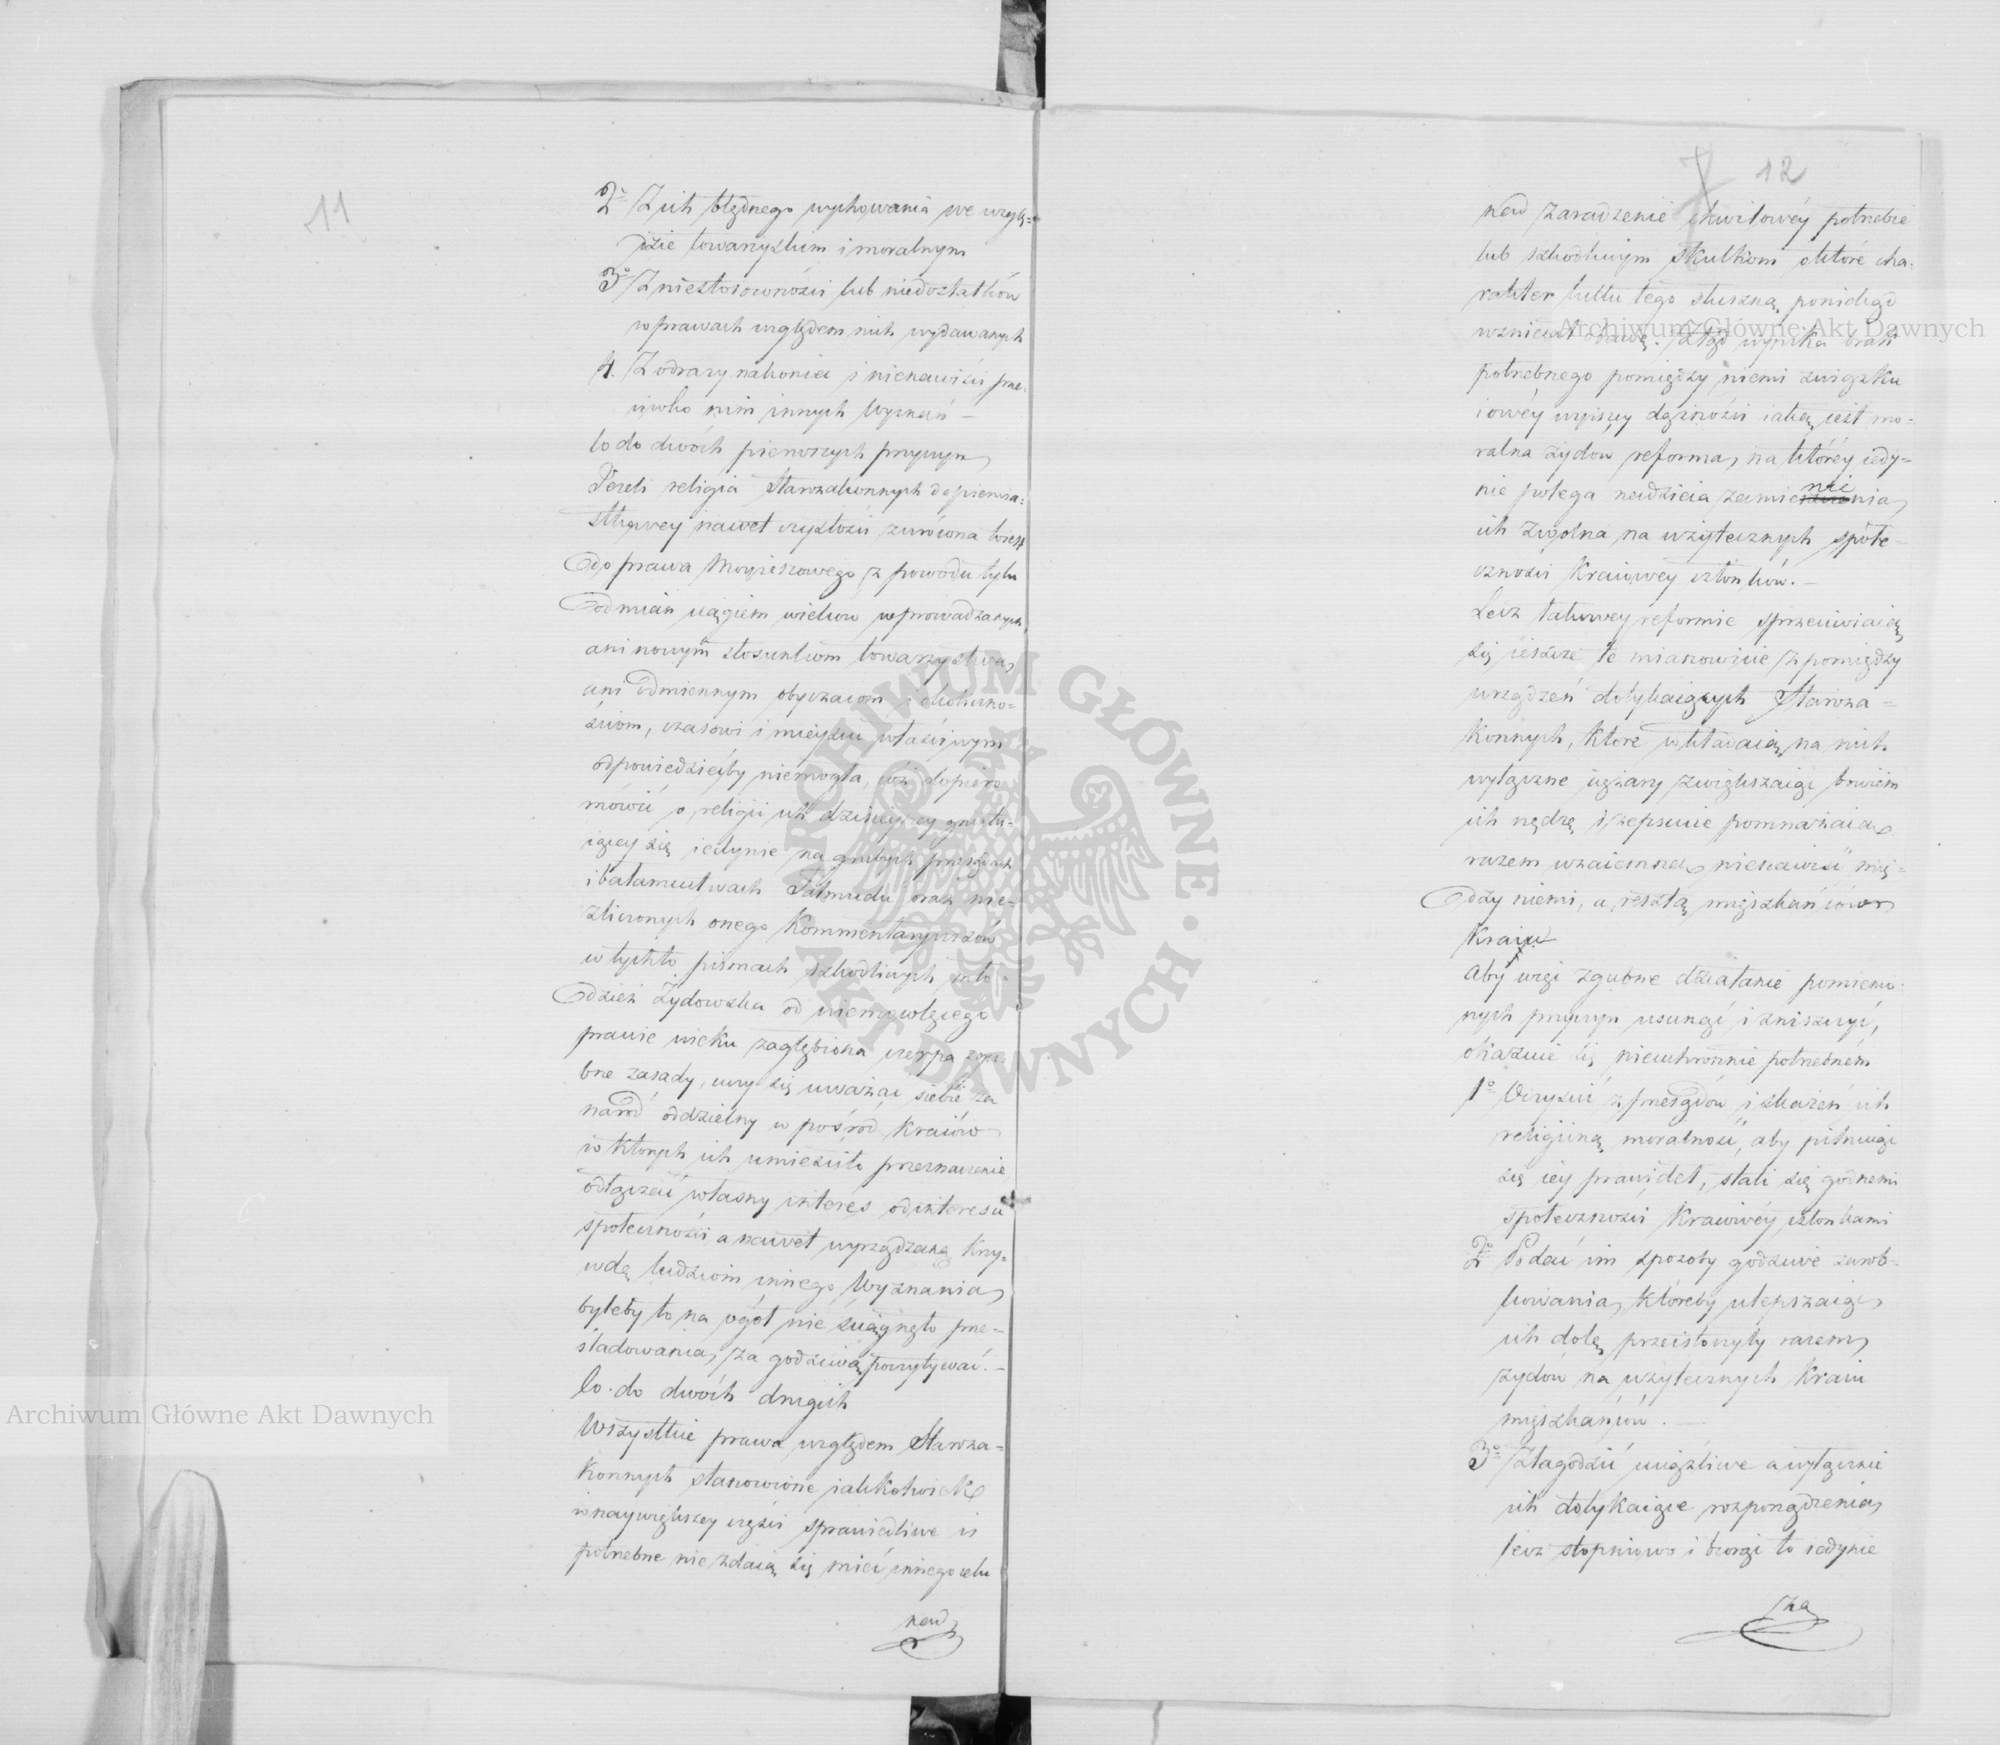 11
2º Z ich błędnego wychowania we wzglę=
dzie towarzyskim i moralnym
3º Z niestosowności lub niedostatków
w prawach względem nich wydawanych
4. Z odrazy nakoniec i nienawiści prze-
ciwko nim innych Wyznań —
Co do dwóch pierwszych przyczyn
Jeżeli religia Starozakonnych do pierwia=
stkowey nawet czystości zwrócona to iest
do prawa Moyżeszowego z powodu tylu
odmian ciągiem wieków wprowadzanych,
ani nowym stosunkom towarzystwa,
ani odmiennym obyczaiom i okoliczno=
ściom, czasowi i mieyscu właściwym
odpowiedziećby niemogła, cóż dopiero
mówić o religii ich dzisieyszey gruntu-
iącey się iedynie na grubych przesądach
i bałamuctwach Talmudu oraz nie-
zliczonych onego Kommentaryuszów
w tychto pismach szkodliwych mło-
dzież Żydowska od niemowlęcego
prawie wieku zagłębiona czerpa zgu-
bne zasady, uczy się uważać siebie za
naród oddzielny w pośród Kraiów
w których ich umieściło przeznaczenie
odłączać własny interes od interesu
społeczności, a nawet wyrządzaną Krzy-
wdę ludziom innego Wyznania,
byleby to na ogół nie ściągnęło prze-
śladowania, za godziwą poczytywać. —
Co do dwóch drugich
Wszystkie prawa względem Staroza-
konnych stanowione iakkolwiek
w naywiększey części sprawiedliwe i
potrzebne nie zdaią się mieć innego celu
nad
12
nad zaradzenie chwilowéy potrzebie
lub szkodliwym skutkom które cha-
rakter ludu tego słuszną poniekąd
wzniecał obawę. Ztąd wynika brak
potrzebnego pomiędzy niemi związku
i owéy wyższey dążności iaką iest mo-
ralna żydów reforma, na któréy iedy=
nie polega nadzieia zamienienia
ich zwolna na użytecznych społe-
czności Kraiowey członków. —
Lecz takowey reformie sprzeciwiaią
się ieszcze te mianowicie z pomiędzy
urządzeń dotykaiących Staroza=
konnych, które wkładaią na nich
wyłączne ciężary zwiększaiąc bowiem
ich nędzę i zepsucie pomnażaią
razem wzaiemną nienawiść mię-
dzy niemi, a resztą mieszkańców
Kraiu
Aby więc zgubne działanie pomienio-
nych przyczyn usunąć i zniszczyć,
okazuie się nieuchronnie potrzebném
1º Oczyścić z przesądów i skażeń ich
religiiną moralność, aby pilnuiąc
się iéy prawideł, stali się godnemi
społeczności Kraiowéy członkami
2º Podać im sposoby godziwe zarob-
kowania, któreby ulepszaiąc
ich dolę przeistoczyły razem
żydów na użytecznych Kraiu
mieszkańców. —
3º Złagodzić uciążliwe a wyłącznie
ich dotykaiące rozporządzenia,
lecz stopniowo i biorąc to iedynie
za
Archiwum Główne Akt Dawnych
Archiwum Główne Akt Dawnych
ARCHIWUM GŁÓWNE · AKT DAWNYCH ·